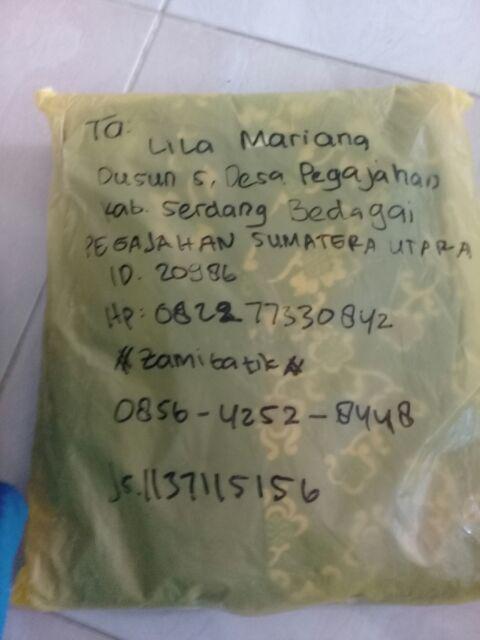 To:
LiLa Mariana
Dusun 5, Desa Pegajahan
Kab. Serdang Bedagai
PEGAJAHAN SUMATERA UTARA
ID. 20986
Hp: 082277330842
#Zamibatik#
0856-4252-8448
Js.1137115156